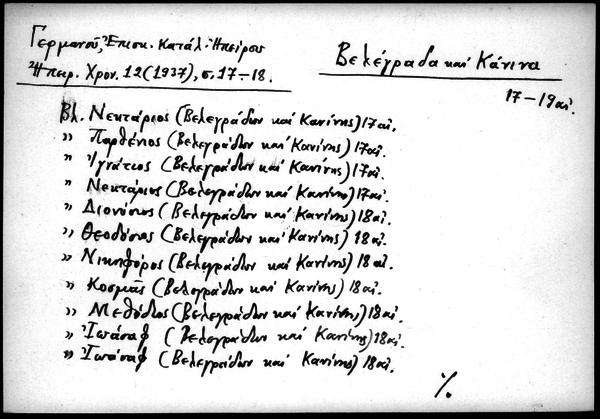 Γερμανοῦ, Ἐπισκ. Κατάλ. Ἠπείρου
Ἠπειρ. Χρον. 12 (1937), σ. 17-18.
Βελέγραδα καὶ Κάνινα
17-19 αἰ.
Βλ. Νεκτάριος (Βελεγράδων καὶ Κανίνης) 17 αἰ.
〃 Παρθένιος (Βελεγράδων καὶ Κανίνης) 17 αἰ.
〃 Ἰγνάτιος (Βελεγράδων καὶ Κανίνης) 17 αἰ.
〃 Νεκτάριος (Βελεγράδων καὶ Κανίνης) 17 αἰ.
〃 Διονύσιος (Βελεγράδων καὶ Κανίνης) 18 αἰ.
〃 Θεοδόσιος (Βελεγράδων καὶ Κανίνης) 18 αἰ.
〃 Νικηφόρος (Βελεγράδων καὶ Κανίνης) 18 αἰ.
〃 Κοσμᾶς (Βελεγράδων καὶ Κανίνης) 18 αἰ.
〃 Μεθόδιος (Βελεγράδων καὶ Κανίνης) 18 αἰ.
〃 Ἰωάσαφ (Βελεγράδων καὶ Κανίνης) 18 αἰ.
〃 Ἰωάσαφ (Βελεγράδων καὶ Κανίνης) 18 αἰ.
٪